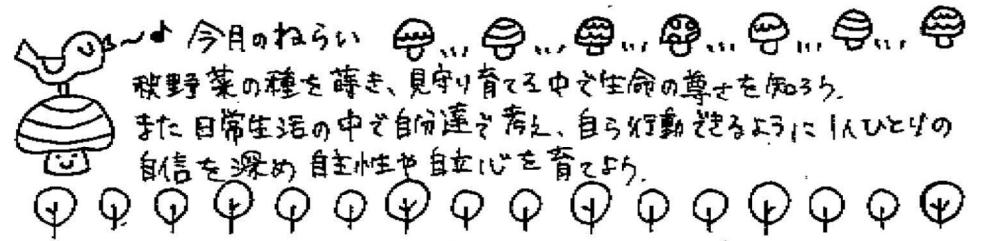 今月のねらい
秋野菜の種を蒔き、見守り育てる中で生命の尊さを知ろう。
また日常生活の中で自分達で考え、自ら行動できるように1人ひとりの
自信を深め自主性や自立心を育てよう。